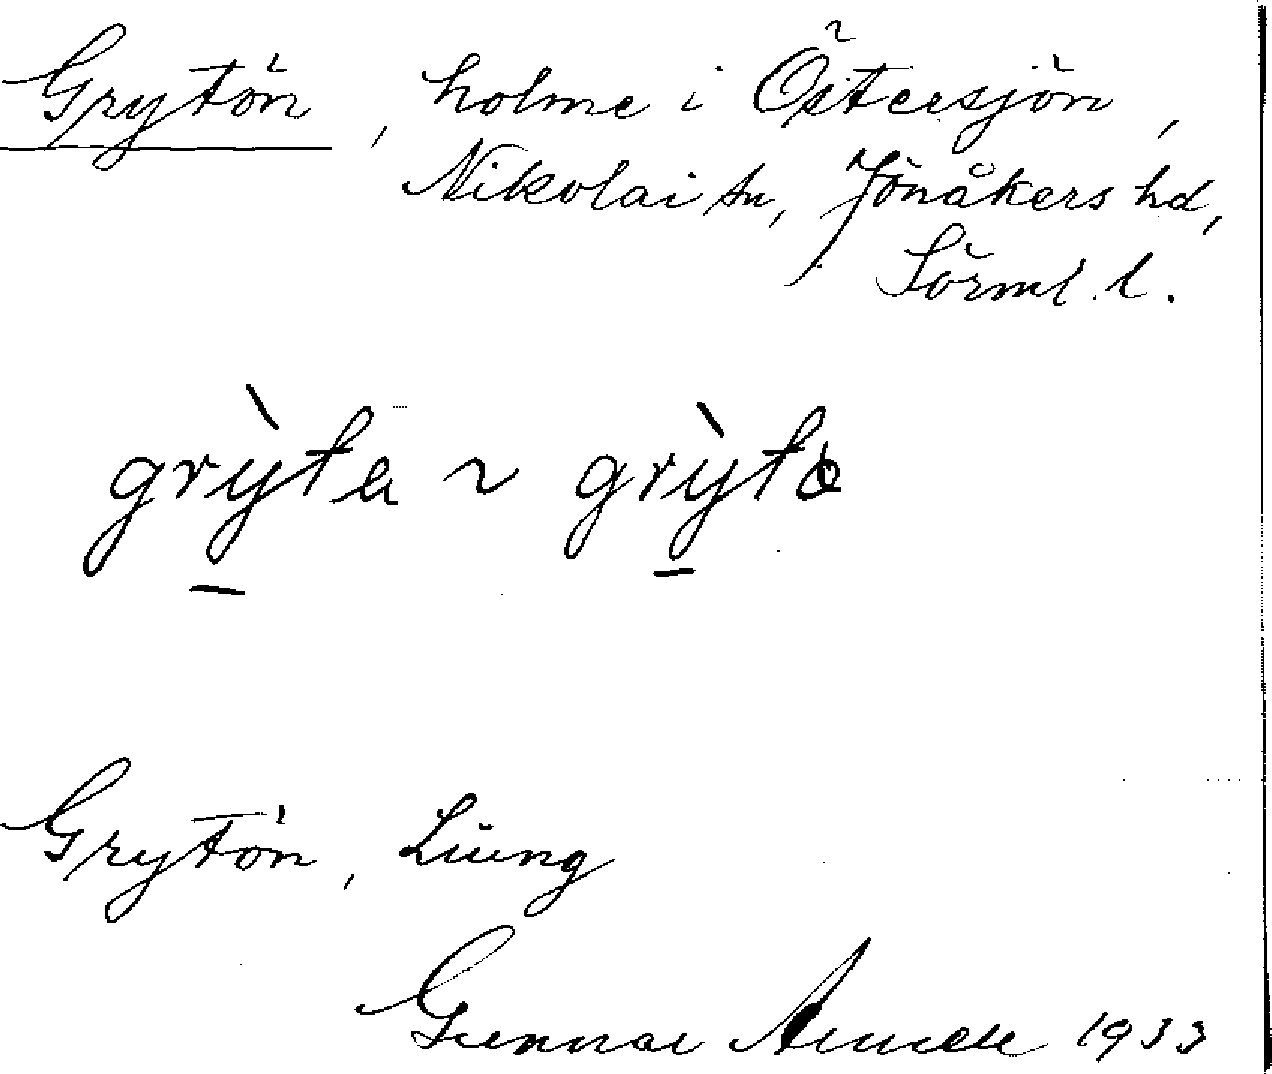 Grytön, holme i Östersjön,
Nikolai sn, Jönåkers hd,
Sörml. l.
grỳta ~ grỳtə
Grytön, Liung
Gunnar 1933